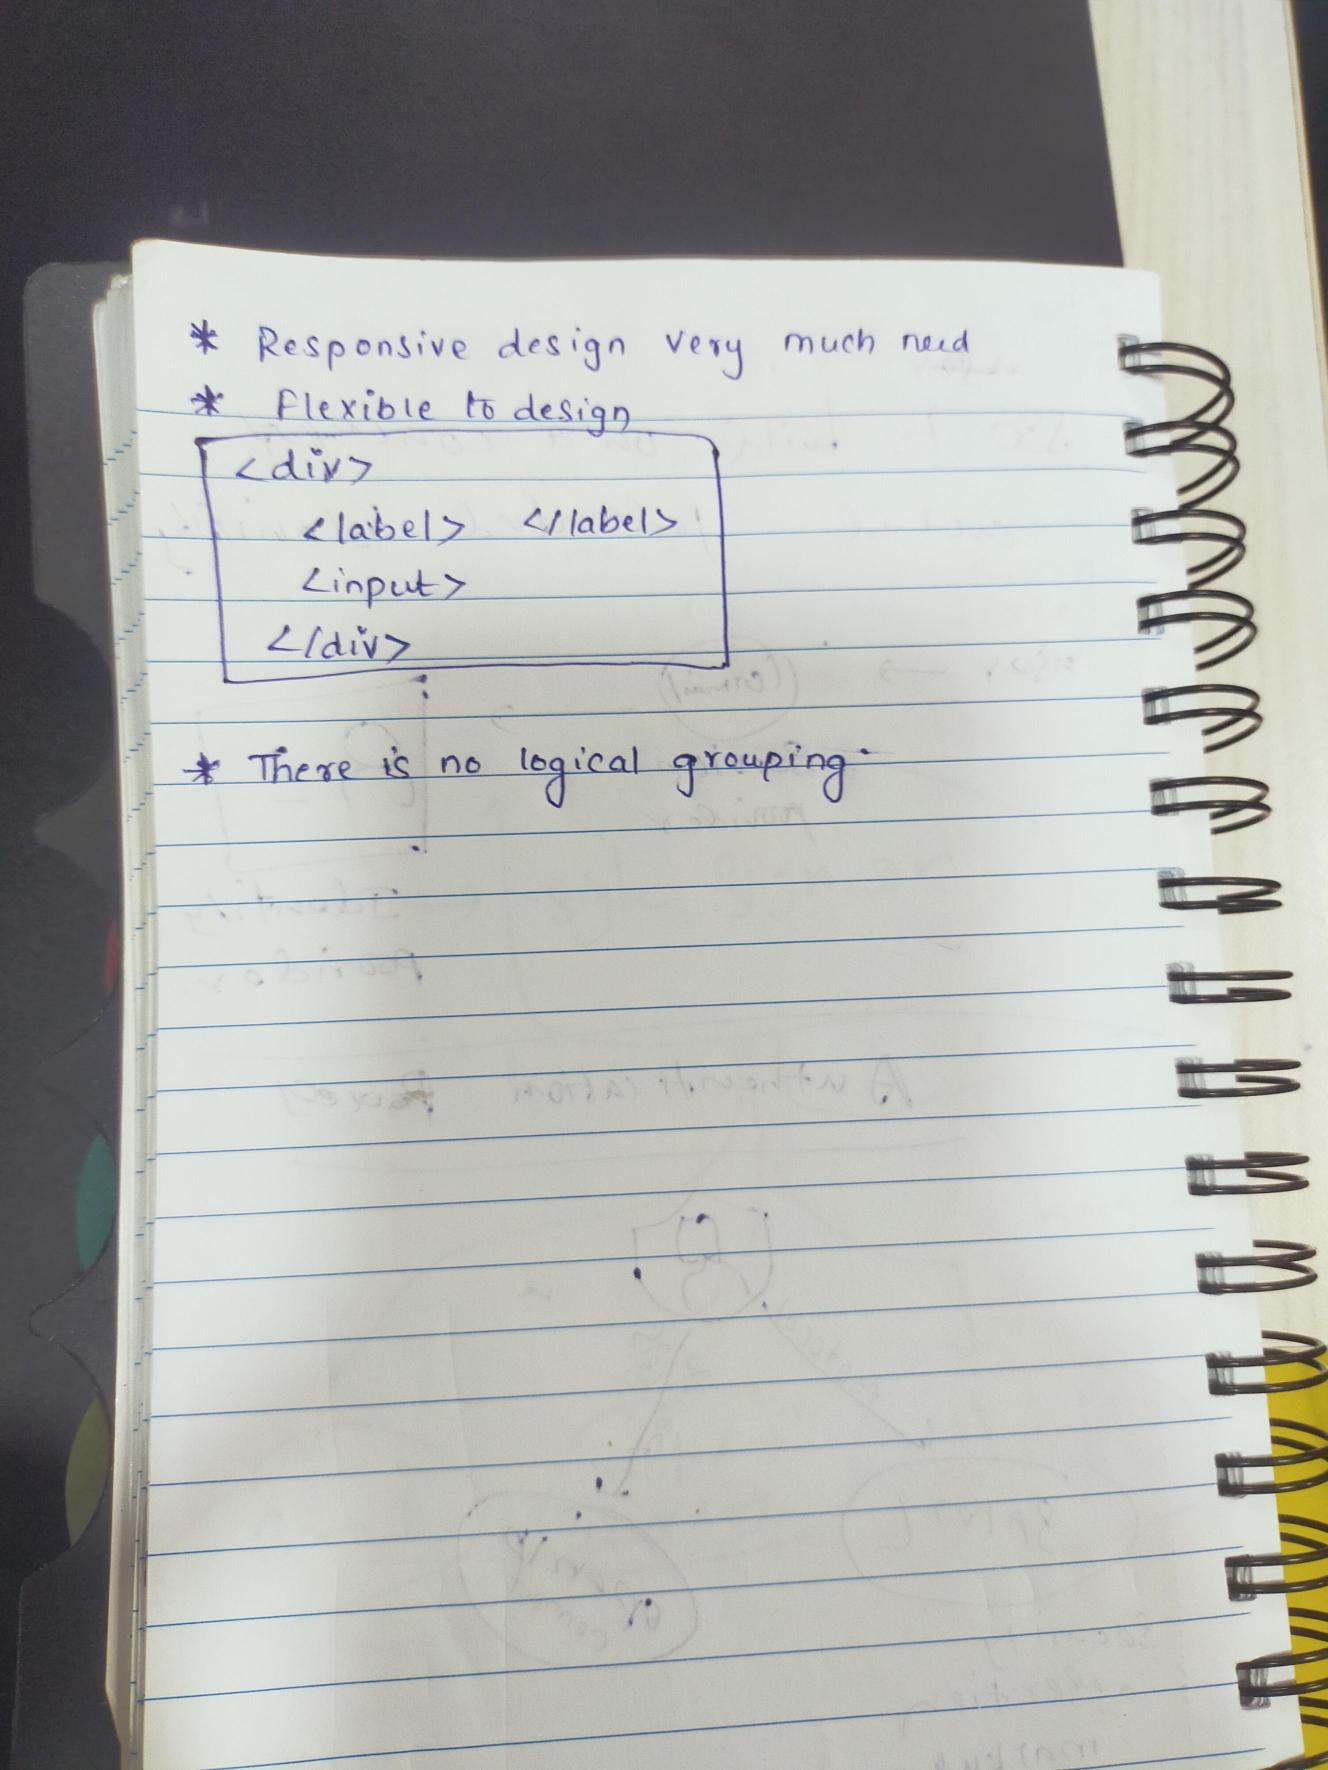 * Responsive design very much need
* Flexible to design
<div>
<label> </label>
<input>
</div>
* There is no logical grouping.